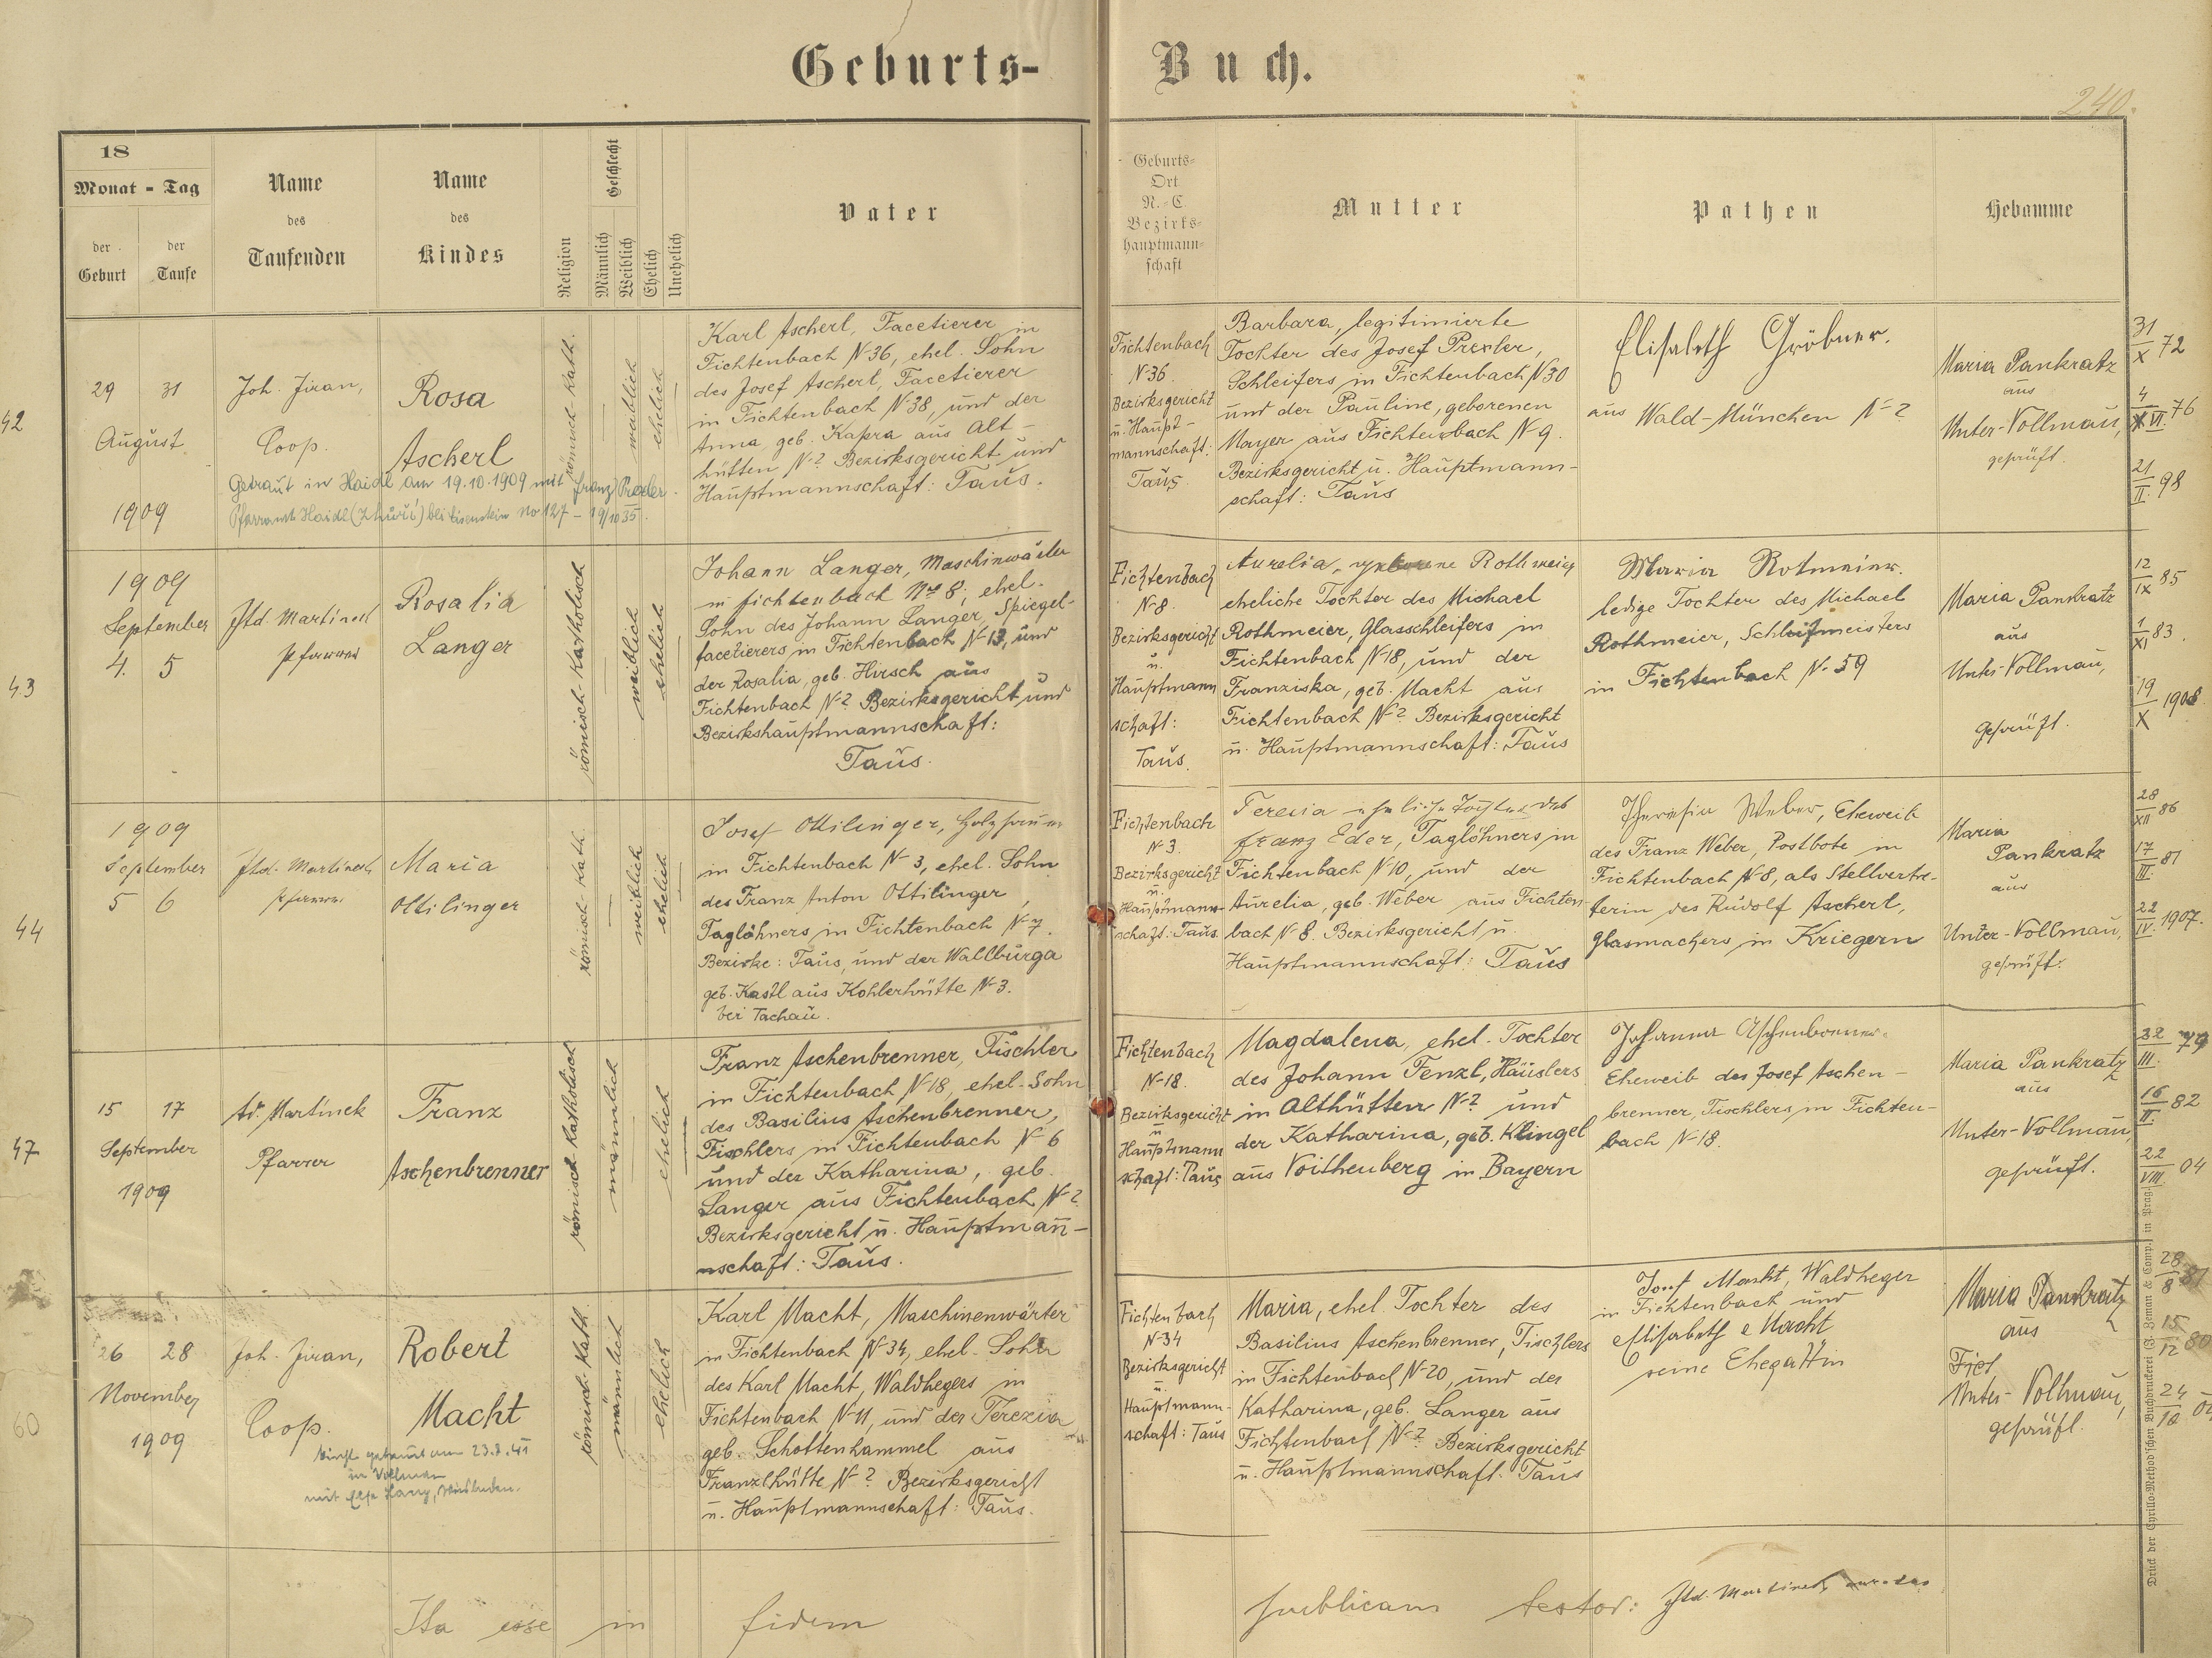 Geburts-
Buch.
240.
18
Monat - Tag
der Geburt
der Taufe
Name des Taufenden
Name des Kindes
Religion
Geschlecht
Männlich
Weiblich
Ehelich
Unehelich
Vater
Geburts-Ort N.-C Bezirks-hauptmann-schaft
Mutter
Pathen
Hebamme
42
29 31
August
1909
Joh. Jiran,
Coop.
Rosa
Ascherl
Getraut in Haidl am 19.10.1909 mit Franz Prexler.
Pfarramt Haidl (Zhůří) bei Eisenstein No 127 - 19/10 35.
römisch kath.
weiblich
ehelich
Karl Ascherl, Facetierer in
Fichtenbach N 36, ehel. Sohn
des Josef Ascherl, Facetierer
in Fichtenbach N 38, und der
Anna, geb. Kapra aus Alt-
hütten N ? Bezirksgericht und
Hauptmannschaft: Taus.
Fichtenbach
N 36
Bezirksgericht
u. Haupt-
mannschaft:
Taus
Barbara, legitimierte
Tochter des Josef Prexler,
Schleifers in Fichtenbach N 30
und der Pauline, geborenen
Mayer aus Fichtenbach N 9.
Bezirksgericht u. Hauptmann-
schaft: Taus
Elisabeth Gröbner.
aus Wald-München N ?
Maria Pankratz
aus
Unter-Vollmau,
geprüft.
31/X 72
4/VI. 76
21/II. 98
43
1909
September
4. 5
Ftd. Martinek
Pfarrer
Rosalia
Langer
römisch-katholisch
weiblich
ehelich
Johann Langer, Maschinwärter
in Fichtenbach No 8; ehel.
Sohn des Johann Langer, Spiegel-
facetierers in Fichtenbach N 13, und
der Rosalia, geb. Hirsch aus
Fichtenbach N ? Bezirksgericht und
Bezirkshauptmannschaft:
Taus.
Fichtenbach
N 8
Bezirksgericht
u.
Hauptmann
schaft:
Taus.
Aurelia, geborene
eheliche Tochter des Michael
Rothmeier, Glasschleifers in
Fichtenbach N 18, und der
Franziska, geb. Macht aus
Fichtenbach N ? Bezirksgericht
u. Hauptmannschaft: Taus
Maria Rotmeier.
ledige Tochter des Michael
Rothmeier, Schleifmeisters
in Fichtenbach N. 59
Maria Pankratz
aus
Unter-Vollmau,
geprüft.
12/IX 85
1/XI 83.
19/X 1908
44
1909
September
5 6
Ftd. Martinek
Pfarrer
Maria
Ottilinger
römisch-kath.
weiblich
ehelich
Josef Ottilinger,
in Fichtenbach N 3, ehel. Sohn
des Franz Anton Ottilinger,
Taglöhners in Fichtenbach N 7.
Bezirke: Taus, und der Wallburga
geb. Kastl aus Kohlerhütte N 3.
bei Tachau.
Fichtenbach
N 3.
Bezirksgericht
u.
Hauptmann-
schaft: Taus.
Teresia eheliche Tochter des
Franz Eder, Taglöhners in
Fichtenbach N 10, und der
Aurelia, geb. Weber aus Fichten-
bach N 8. Bezirksgericht u.
Hauptmannschaft: Taus
Theresia Weber, Eheweib
des Franz Weber, Postbote in
Fichtenbach N 8, als Stellvertre-
terin des Rudolf Ascherl,
Glasmachers in Kriegern
Maria
Pankratz
aus
Unter-Vollmau,
geprüft.
28/XII 86
17/III. 81
22/IV. 1907.
47
15 17
September
1909
Fd. Martinek
Pfarrer
Franz
Aschenbrenner
römisch-katholisch
männlich
ehelich
Franz Aschenbrenner, Tischler
in Fichtenbach N 18, ehel. Sohn
des Basilius Aschenbrenner,
Tischlers in Fichtenbach N 6
und der Katharina, geb.
Langer aus Fichtenbach N ?
Bezirksgericht u. Hauptman̄-
nschaft: Taus.
Fichtenbach
N 18.
Bezirksgericht
u.
Hauptmann
schaft: Taus
Magdalena, ehel. Tochter
des Johann Fenzl, Häuslers
in Althütten N ? und
der Katharina, geb. Klingel
aus Voithenberg in Bayern
Johanna Aschenbrenner.
Eheweib des Josef Aschen-
brenner, Tischlers in Fichten-
bach N 18.
Maria Pankratz
aus
Unter-Vollmau,
geprüft.
22/III. 79
16/II. 82
22/VIII. 04
60
26 28
November
1909
Joh. Jiran,
Coop.
Robert
Macht
kirchl. getraut am 23.8.41
in Vollmau
mit Else Harz, Wiesbaden.
römisch-kath.
männlich
ehelich
Karl Macht, Maschinenwärter
in Fichtenbach N 34, ehel. Sohn
des Karl Macht, Waldhegers in
Fichtenbach N 11, und der Terezia
geb. Schottenhammel aus
Franzlhütte N ? Bezirksgericht
u. Hauptmannschaft: Taus.
Fichtenbach
N 34
Bezirksgericht
u.
Hauptmann-
schaft: Taus
Maria, ehel. Tochter des
Basilius Aschenbrenner, Tischlers
in Fichtenbach N 20, und der
Katharina, geb. Langer aus
Fichtenbach N ? Bezirksgericht
u. Hauptmannschaft: Taus
Josef Macht, Waldheger
in Fichtenbach und
Elisabeth Macht
seine Ehegattin
Maria Pankratz
aus
Fich
Unter-Vollmau,
geprüft.
28/8 81
15/12 80
24/10
Ita esse in fidem publicam testor: Ftd. Martinek
Druck der Cyrillo-Method'schen Buchdruckerei (G. Zeman & Comp.) in Prag.